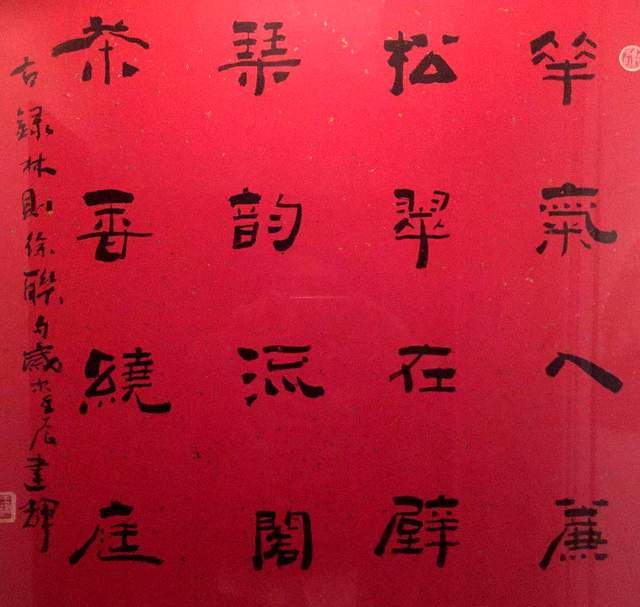 氣入簾
松翠在壁
琴韵流閣
茶香繞庭
右錄林則徐聯句歲次壬辰建輝